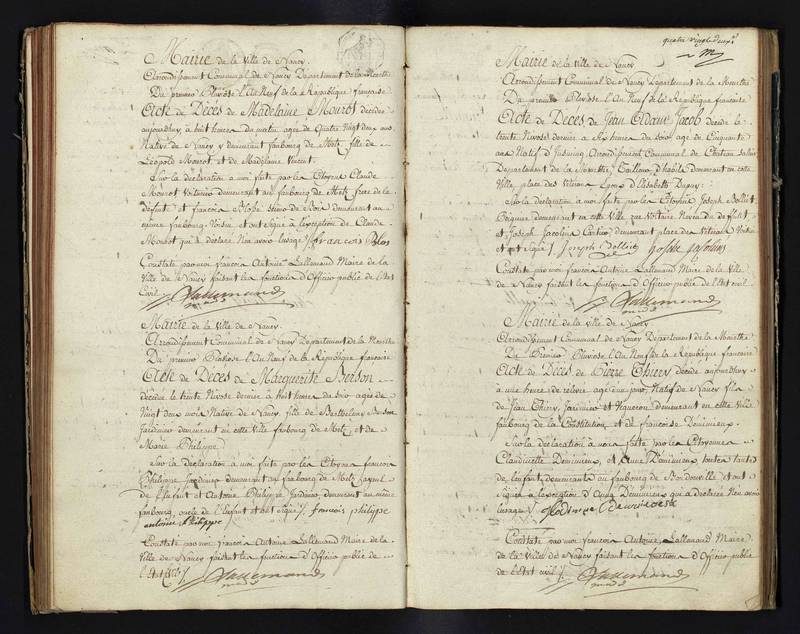 Mairie de la Ville de Nancy.
Arrondissement Communal de Nancy Departement de la Meurthe
Du premier Pluviose l'An Neuf de la Republique francaise
Acte de Deces de Madelaine Mourot décédée
aujourdhuy à huit heures du matin agée de Quatre Vingt deux ans
Native de Nancy y demeurant faubourg de Metz, fille de
Léopold Mourot et de Madelaine
Sur la déclaration à moi faite par les Citoyens Claude
Mourot Voiturier demeurant au faubourg de Metz frere de la
défunte et francois Blosse de Bois demeurant au
même faubourg Voisin et ont signé à l'exception de Claude
Mourot qui a déclaré Non avoir l'usage francois Blos
Constaté par moi francois Antoine Lallemand Maire de la
Ville de Nancy faisant les fonctions d'Officier public de l'Etat
Civil Lallemand
Mairie de la Ville de Nancy.
Arrondissement Communal de Nancy Departement de la Meurthe
Du premier Pluviose l'An Neuf de la République francaise
Acte de Deces de Marguerite Berson
décédée le trente Nivose dernier à huit heures du soir agée de
Vingt deux mois Native de Nancy, fille de Berthelemy Berson
Jardinier demeurant en cette Ville faubourg de Metz et de
Marie Philippe
Sur la déclaration à moi faite par les Citoyens francois
Philippe Jardinier demeurant au faubourg de Metz, Layeul
de l'Enfant et Antoine Philippe Jardinier, demeurant au même
faubourg, oncle de l'Enfant et ont signé francois philippe
antoine Philippe
Constaté par moi francois Antoine Lallemand Maire de la
Ville de Nancy faisant les fonctions d'Officier public de
l'Etat Civil Lallemand
quatre vingt deux
Mairie de la Ville de Nancy
Arrondissement Communal de Nancy Departement de la Meurthe
Du premier Pluviose l'An Neuf de la République francaise
Acte de Deces de Jean Adam Jacob décédé le
trente Nivose dernier à heures du soir agé de Cinquante
ans Natif d' Arrondissement Communal de Chateau Salins
Departement de la Meurthe, Tailleur d'habits demeurant en cette
Ville, place des Vétérans Epoux d'Elisabeth Dupuy.
Sur la déclaration à moi faite par les Citoyens Joseph Bolliet
demeurant en cette Ville rue Voltaire Neveu du défunt
et Joseph Jacobin demeurant place des Vétérans Voisin
et ont signé Joseph Bolliet
Constaté par moi francois Antoine Lallemand Maire de la Ville
de Nancy faisant les fonctions d'Officier public de l'Etat civil
Lallemand
Mairie de la ville de Nancy
Arrondissement Communal de Nancy Departement de la Meurthe
Du Premier Pluviose l'An Neuf de la République francaise
Acte de Deces de Pierre Thiery décédé aujourdhuy
à une heure de relevée agé d'un jour Natif de Nancy fils
de Jean Thiery, Jardinier et Vigneron demeurant en cette Ville
faubourg de la Constitution et de francoise
Sur la déclaration à moi faite par les Citoyennes
et Anne toutes tantes
de l'enfant demeurant au faubourg de et ont
signé à l'exception d'Anne qui a déclaré Non avoir
l'usage
Constaté par moi francois Antoine Lallemand Maire
de la Ville de Nancy faisant les fonctions d'Officier public
de l'Etat civil Lallemand